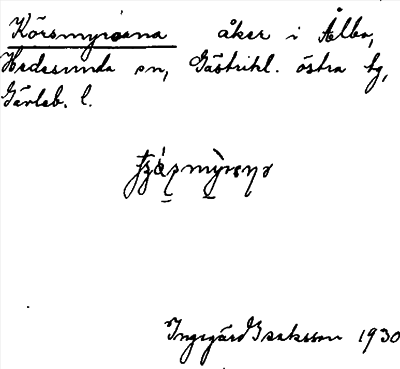 Körsmyrorna åker i Ålbo,
Hedesunda sn, Gästrikl. östra tg,
Gävleb. l.
Ingegärd Isaksson 1930